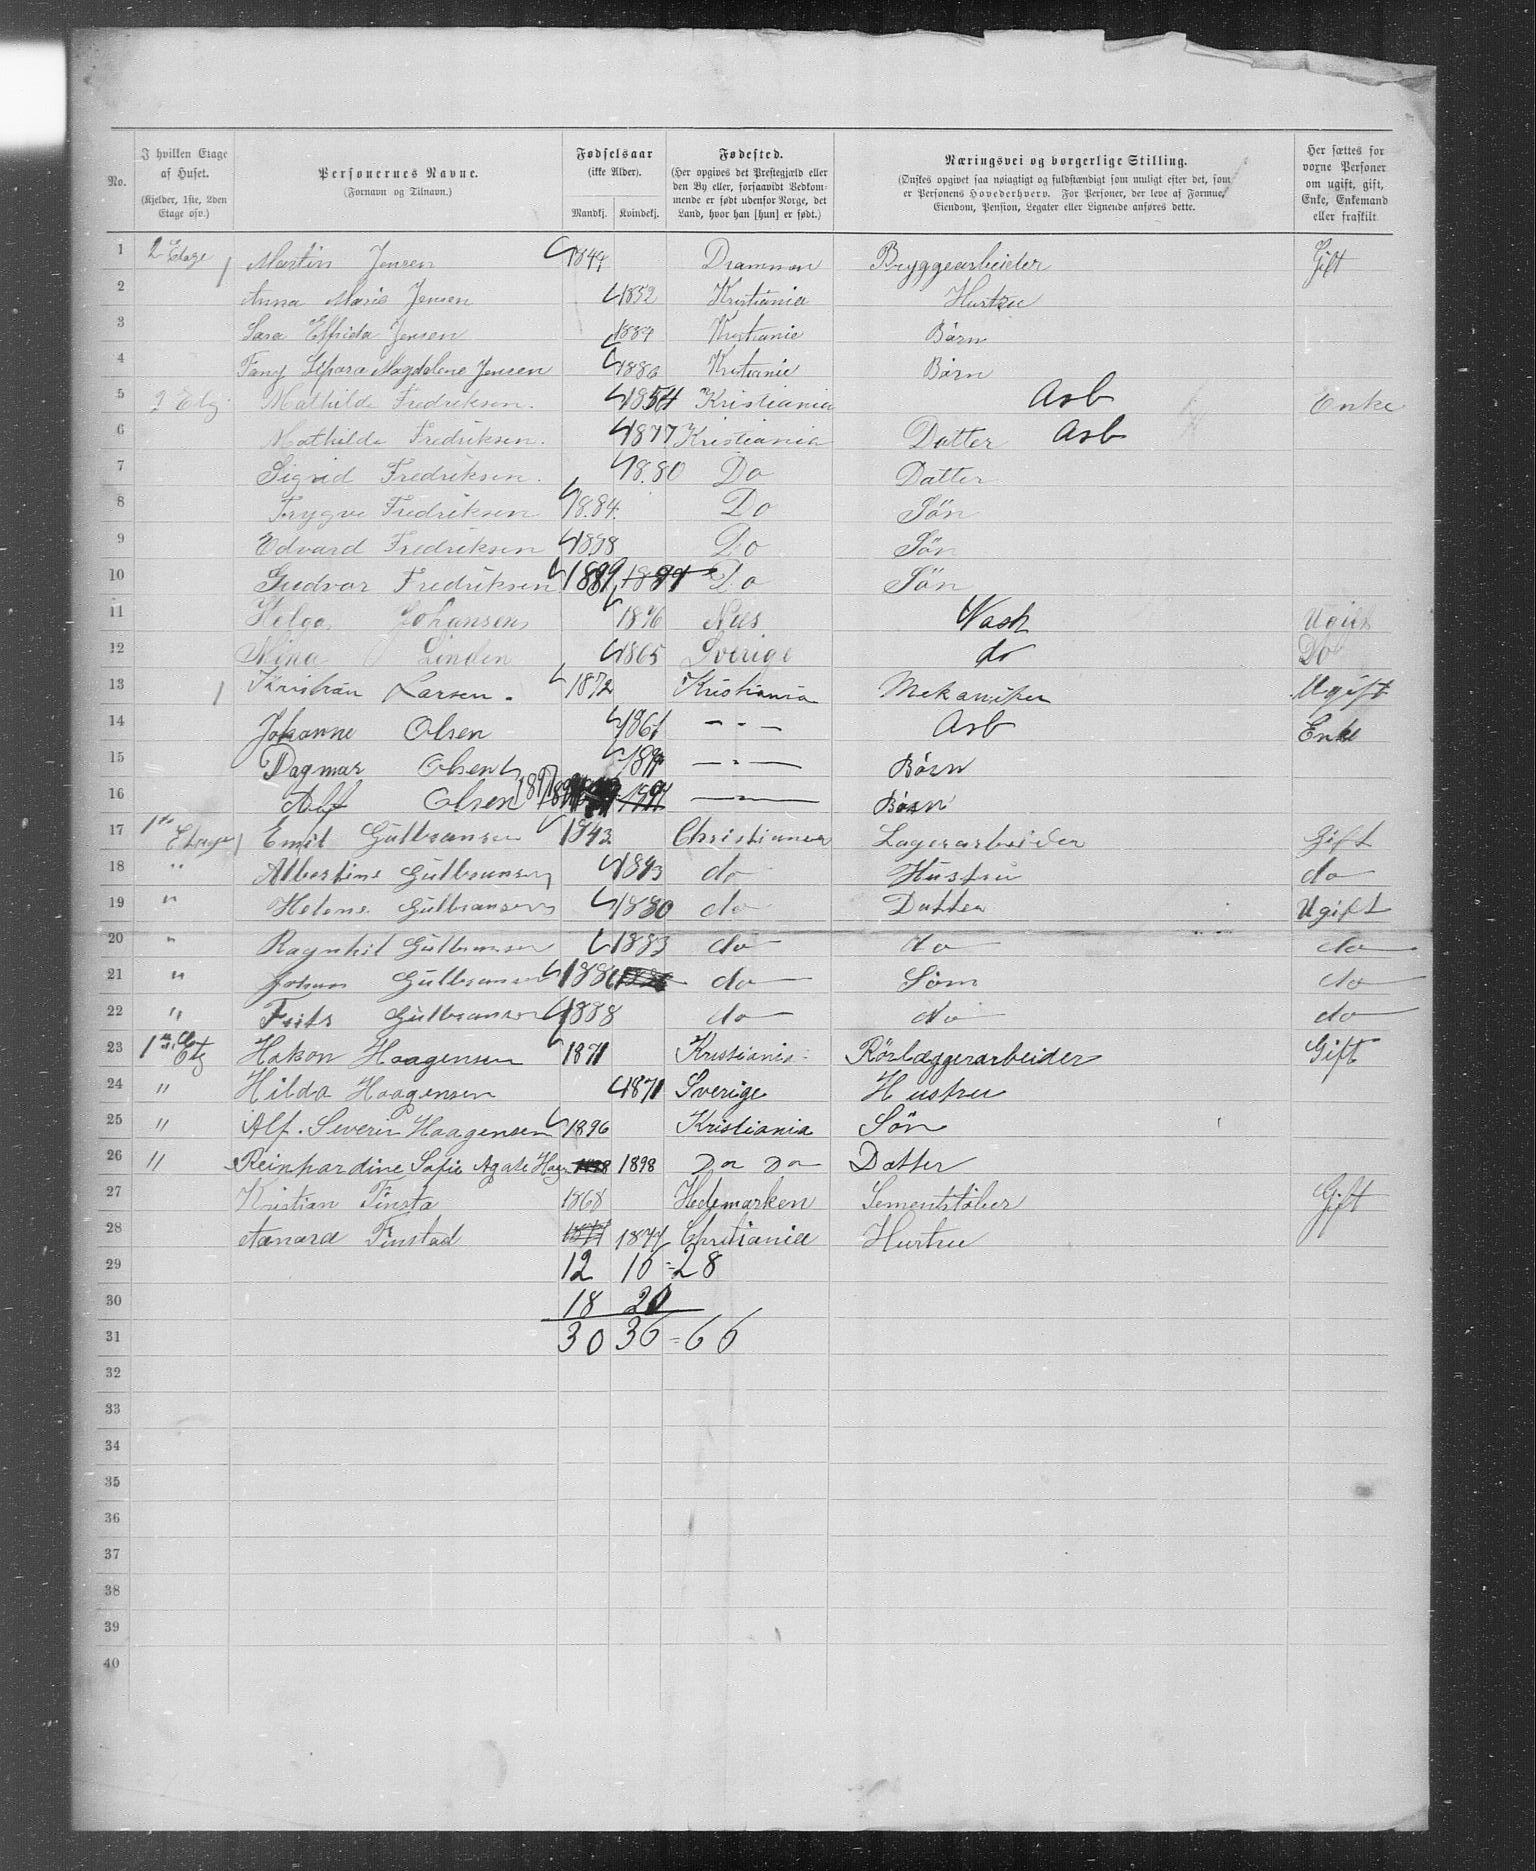 No.
I hvilken Etage af Huset. (Kjelder, 1ste, 2den Etage osv.)
Personernes Navne. (Fornavn og Tilnavn.)
Fødselsaar (ikke Alder). Mandkj. Kvindekj.
Fødested. (Her opgives det Prestegjæld eller den By eller, forsaavidt Vedkommende er født udenfor Norge, det Land, hvor han [hun] er født.)
Næringsvei og borgerlige Stilling. (Ønskes opgivet saa nøiagtigt og fuldstændigt som muligt efter det, som er Personens Hovederhverv. For Personer, der leve af Formue, Eiendom, Pension, Legater eller Lignende anføres dette.)
Her sættes for voxne Personer om ugift, gift, Enke, Enkemand eller fraskilt
1 2 Etage Martin Jensen 1844 Drammen Bryggearbeider Gift
2 Anna Marie Jensen 1852 Kristiania Hustru
3 Sara Elfrida Jensen 1884 Kristiania Børn
4 Fany Magdalene Jensen 1886 Kristiania Børn
5 2 Etg. Mathilde Fredriksen. 1854 Kristiania Arb Enke
6 Mathilde Fredriksen. 1877 Kristiania Datter Arb
7 Sigrid Fredriksen. 1880 Do Datter
8 Trygve Fredriksen 1884. Do Søn
9 Edvard Fredriksen Do Søn
10 Gudvar Fredriksen 1889 Do Søn
11 Helga Johansen 1876 Næs Vask Ugift
12 Mina Linden 1865 Sverige do Do
13 Kristian Larsen. 1872 Kristiania Mekaniker Ugift
14 Johanne Olsen 1861 — " — Arb Enke
15 Dagmar Olsen — " — Børn
16 Alf Olsen 1897 — " — Børn
17 1ste Etage Emil Gulbransen 1843 Christiania Lagerarbeider Gift
18 " Albertine Gulbransen 1843 do Hustru do
19 " Helene Gulbransen 1880 do Datter Ugift
20 " Ragnhil Gulbransen 1883 do do do
21 " Johan Gulbransen 1886 do Søn do
22 " Frits Gulbransen 1888 do do do
23 1ste Etg Hakon Haagensen 1871 Kristiania Rörlæggerarbeider Gift
24 " Hilda Haagensen 1871 Sverige Hustru
25 " Alf. Severin Haagensen 1896 Kristiania Søn
26 " Reinhardine Sofie Agate Haag 1898 Do Do Datter
27 Kristian Finsta 1868 Hedemarken Sementstøber Gift
28 Finstad 1877 Christiania Hustru
29 12 16 = 28
30 18 20
31 30 36 = 66
32
33
34
35
36
37
38
39
40